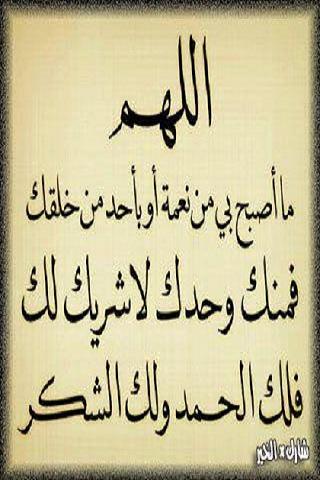 اللهم
ما أصبح بي من نعمة أو بأحد من خلقك
فمنك وحدك لا شريك لك
فلك الحمد ولك الشكر
شارك الخير